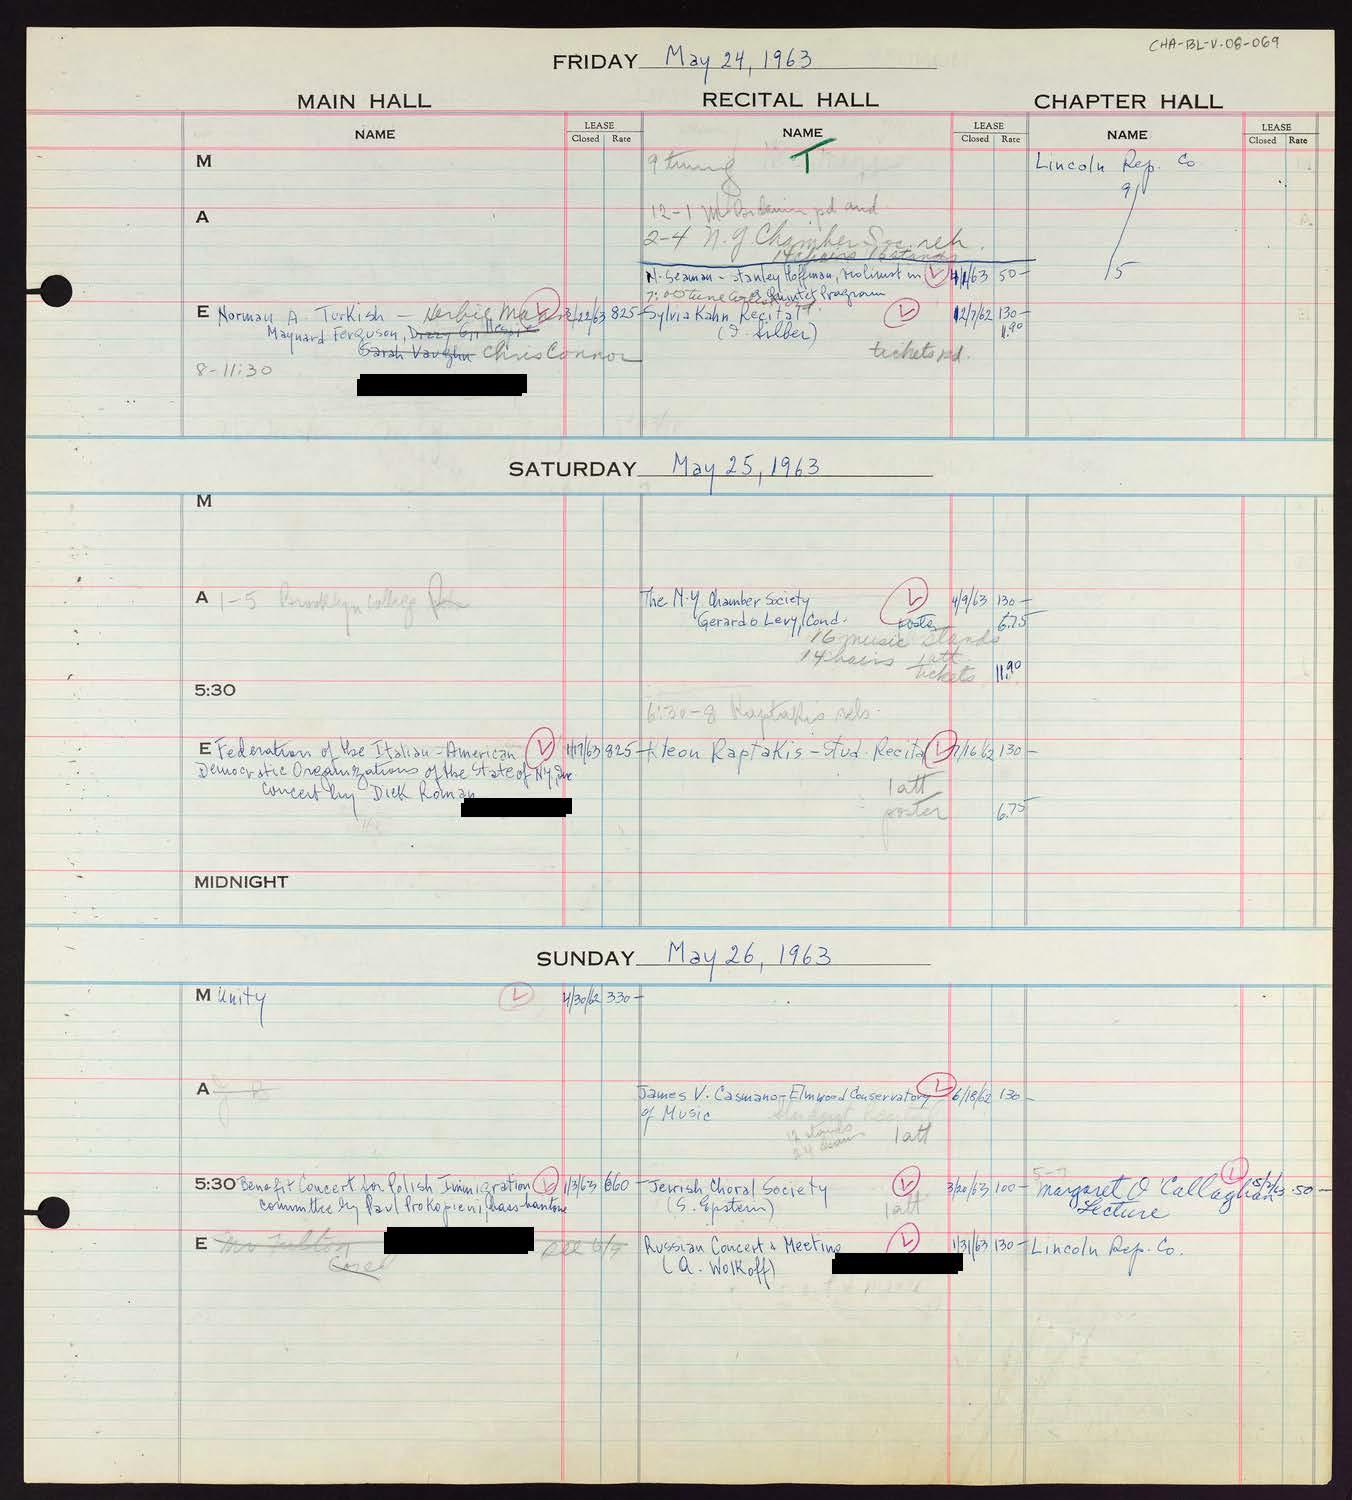 CHA-BL-V-08-069
FRIDAY May 24, 1963
MAIN HALL RECITAL HALL CHAPTER HALL
NAME LEASE Closed Rate NAME LEASE Closed Rate NAME LEASE Closed Rate
M 9 tuning T Lincoln Rep. Co
9
A 12-1 pd and
2-4 N.Y Chamber Soc. reh.
14 chairs 16 stands
N. Seaman - Stanley Hoffman, violinist in L 50- 15
7:00 tune Quintet Program
E Norman A. Turkish - Herbie Mann L 3/22/63 825- Sylvia Kahn Recital L 12/7/62 130-
Maynard Ferguson, Dizzy Gillespie (I. Silber) 11.90
Sarah Vaughn Chris Connor tickets pd.
8-11:30
SATURDAY May 25, 1963
M
A 1-5 Brooklyn College Reh The N.Y. Chamber Society L 4/9/63 130-
Gerardo Levy, Cond. poster 6.75
16 music stands
14 chairs 1 att
tickets 11.90
5:30
6:30-8 Raptakis reh.
E Federation of the Italian-American L 1/17/63 825- Kleon Raptakis - Stud. Recital L 7/16/62 130-
Democratic Organizations of the State of NY, Inc
Concert by Dick Roman 1 att
poster 6.75
MIDNIGHT
SUNDAY May 26, 1963
M Unity L 4/30/62 330-
A James V. Casmano - Elmwood Conservatory L 6/18/62 130-
of Music Student Recital
12 stands 1 att
24 chairs
5-7
5:30 Benefit Concert for Polish Immigration L 1/3/63 660- Jewish Choral Society L 3/20/63 100- Margaret O'Callaghan L 50-
Committee by Paul Prokopieni, bass-baritone (S. Epstein) 1 att Lecture
E Mr Fulton see 6/9 Russian Concert & Meeting L 1/31/63 130- Lincoln Rep. Co.
(A. Wolkoff)